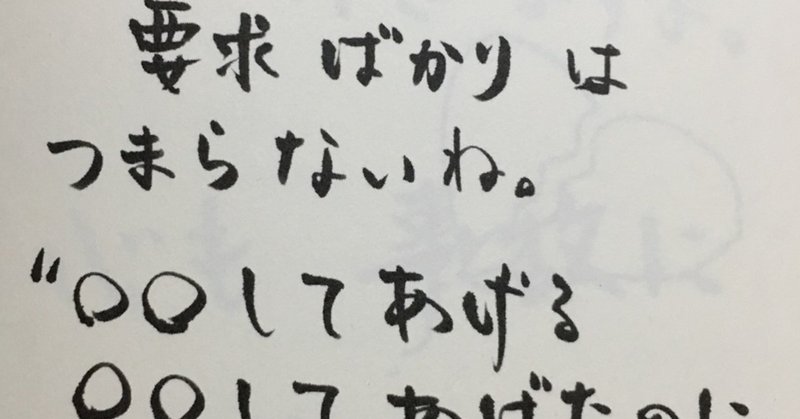 要求ばかりは
つまらないね。
"○○してあげる
○○してあげたのに